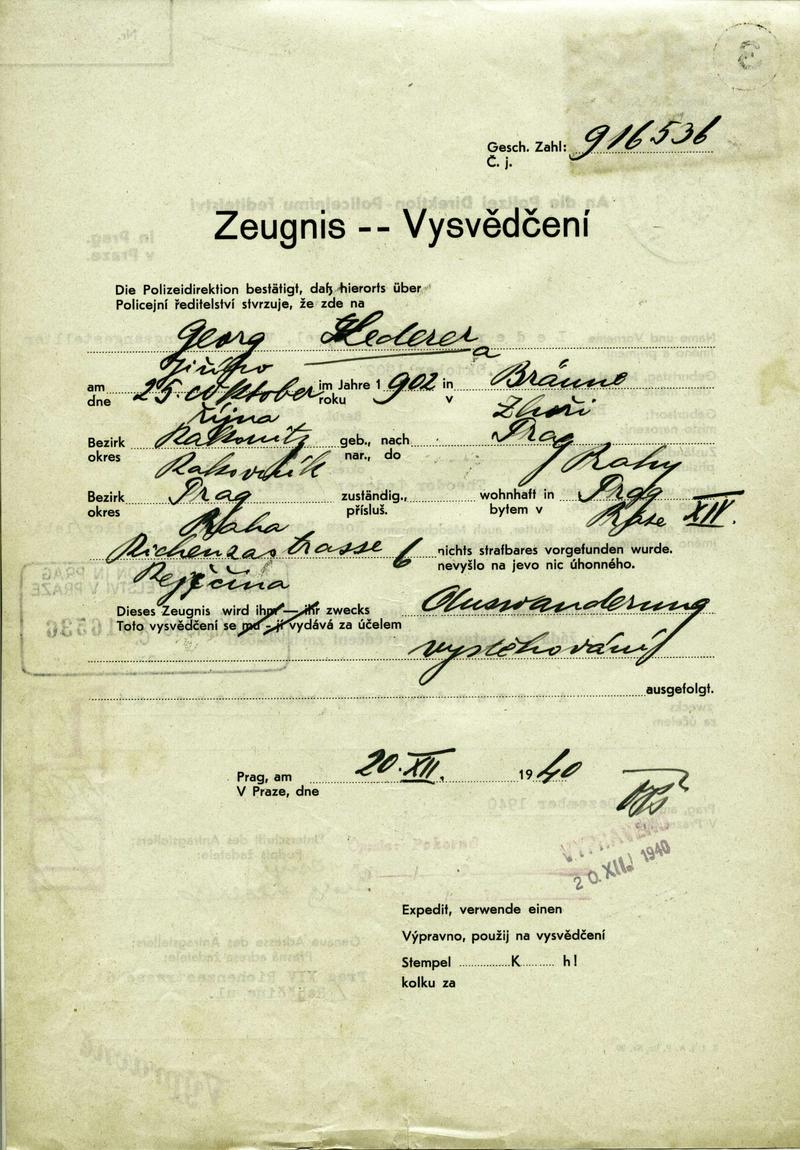 Gesch. Zahl: 916536
Č. j.
Zeugnis -- Vysvědčení
Die Polizeidirektion bestätigt, daß hierorts über
Policejní ředitelství stvrzuje, že zde na
Georg Lederer
Jiřího a
am 25. Oktober im Jahre 1 902 in Bränne
dne října roku v Zhoři
Bezirk Rakonitz geb., nach Prag
okres Rakovník nar., do Prahy
Bezirk Prag zuständig., wohnhaft in Prag
okres Praha přísluš. bytem v Praze XIV.
Richenzastrasse 6 nichts strafbares vorgefunden wurde.
Rejčina nevyšlo na jevo nic úhonného.
Dieses Zeugnis wird ihm — ihr zwecks Auswanderung
Toto vysvědčení se mu - jí vydává za účelem
vystěhování
ausgefolgt.
Prag, am 20. XII. 1940
V Praze, dne
VYPRAVENO
20. XII. 1940
Expedit, verwende einen
Výpravno, použij na vysvědčení
Stempel ............K......... h!
kolku za